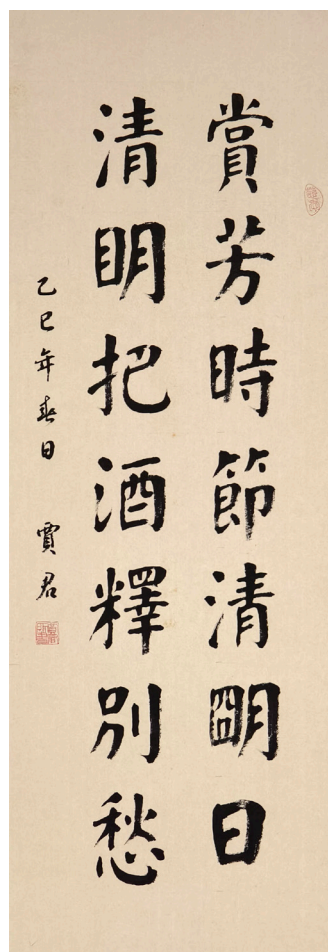 賞芳時節清朙日
清眀把酒釋別愁
乙巳年春日 賈君